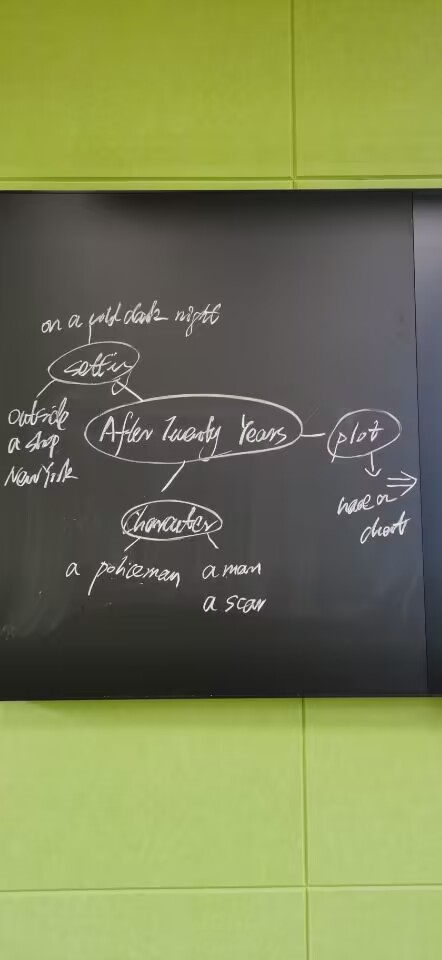 on a cold dark night
setting
outside
a shop
New York
After Twenty Years
plot
have a
chat
Character
a policeman
a man
a scar